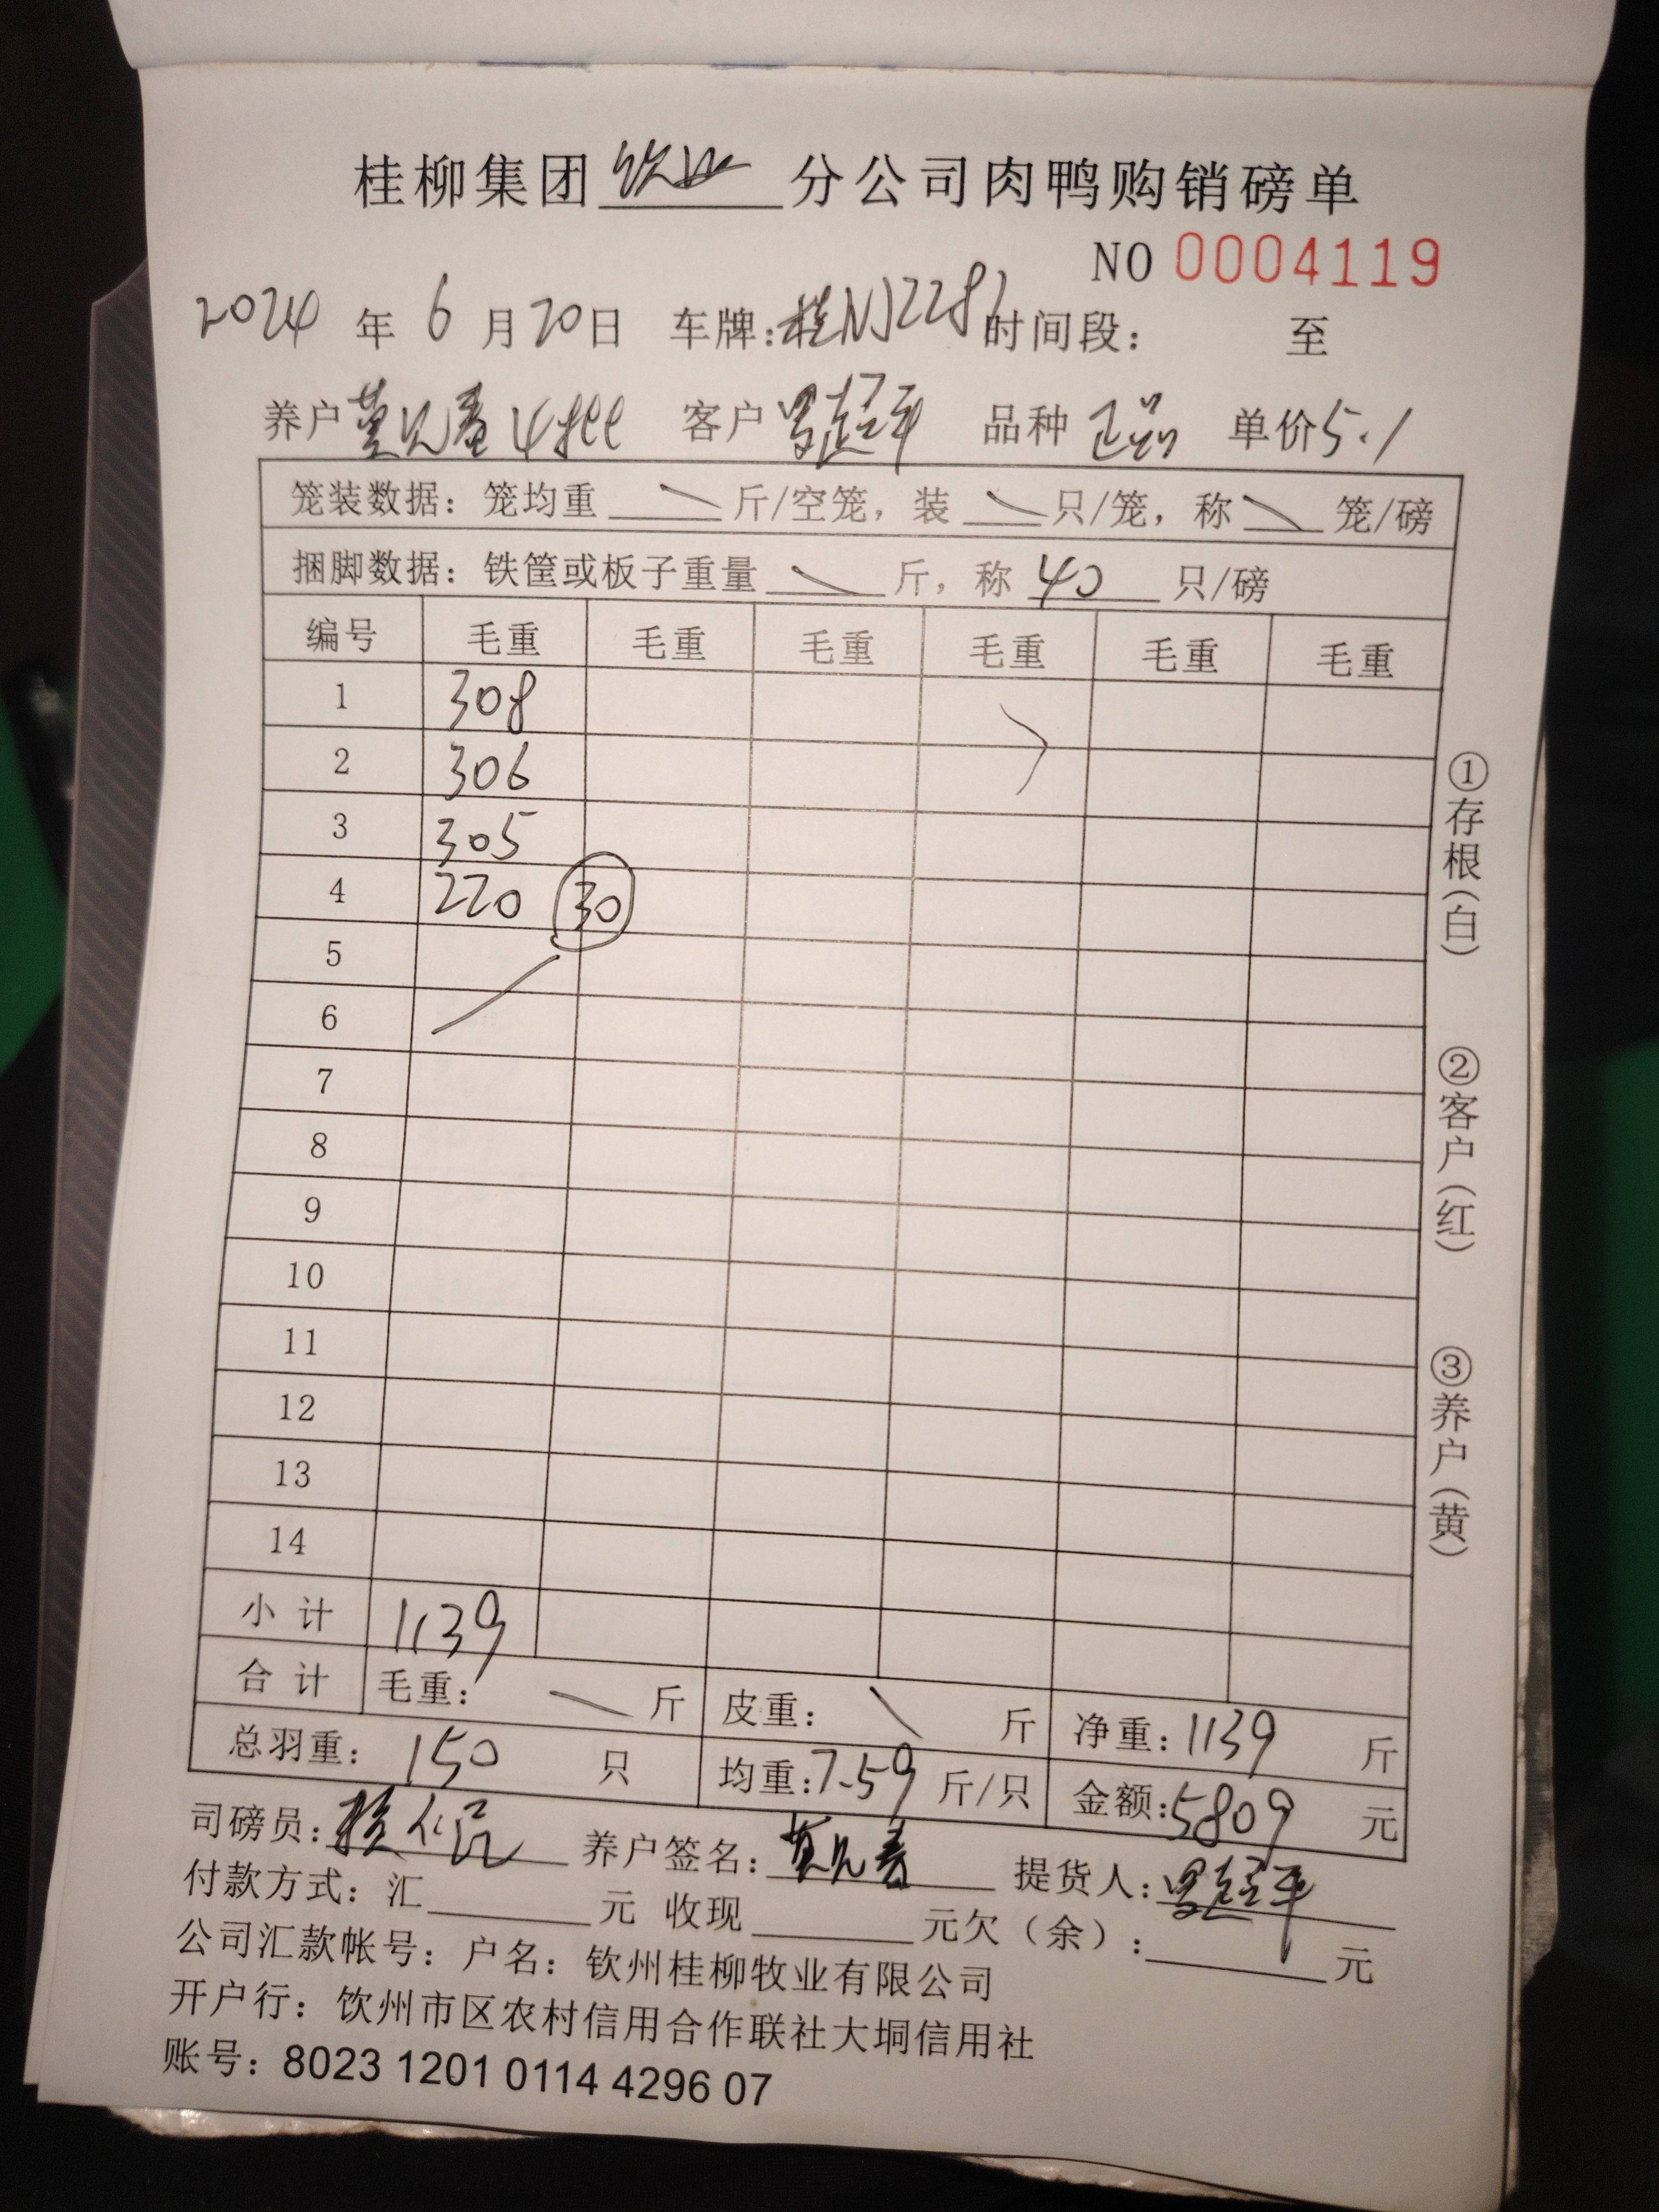 桂柳集团 钦州 分公司肉鸭购销磅单
NO 0004119
2024 年 6 月 20 日 车牌: 桂NJ2281 时间段: 至
养户 莫兄春 4批 客户 罗超平 品种 正品 单价 5.1
笼装数据: 笼均重 斤/空笼, 装 只/笼, 称 笼/磅
捆脚数据: 铁筐或板子重量 斤, 称 40 只/磅
编号 毛重 毛重 毛重 毛重 毛重 毛重
1 308
2 306
3 305
4 220 30
5
6
7
8
9
10
11
12
13
14
小计 1139
合计 毛重: 斤 皮重: 斤 净重: 1139 斤
总羽重: 150 只 均重: 7.59 斤/只 金额: 5809 元
司磅员: 养户签名: 莫兄春 提货人: 罗超平
付款方式: 汇 元 收现 元欠(余): 元
公司汇款帐号: 户名: 钦州桂柳牧业有限公司
开户行: 钦州市区农村信用合作联社大垌信用社
账号: 8023 1201 0114 4296 07
①存根(白) ②客户(红) ③养户(黄)